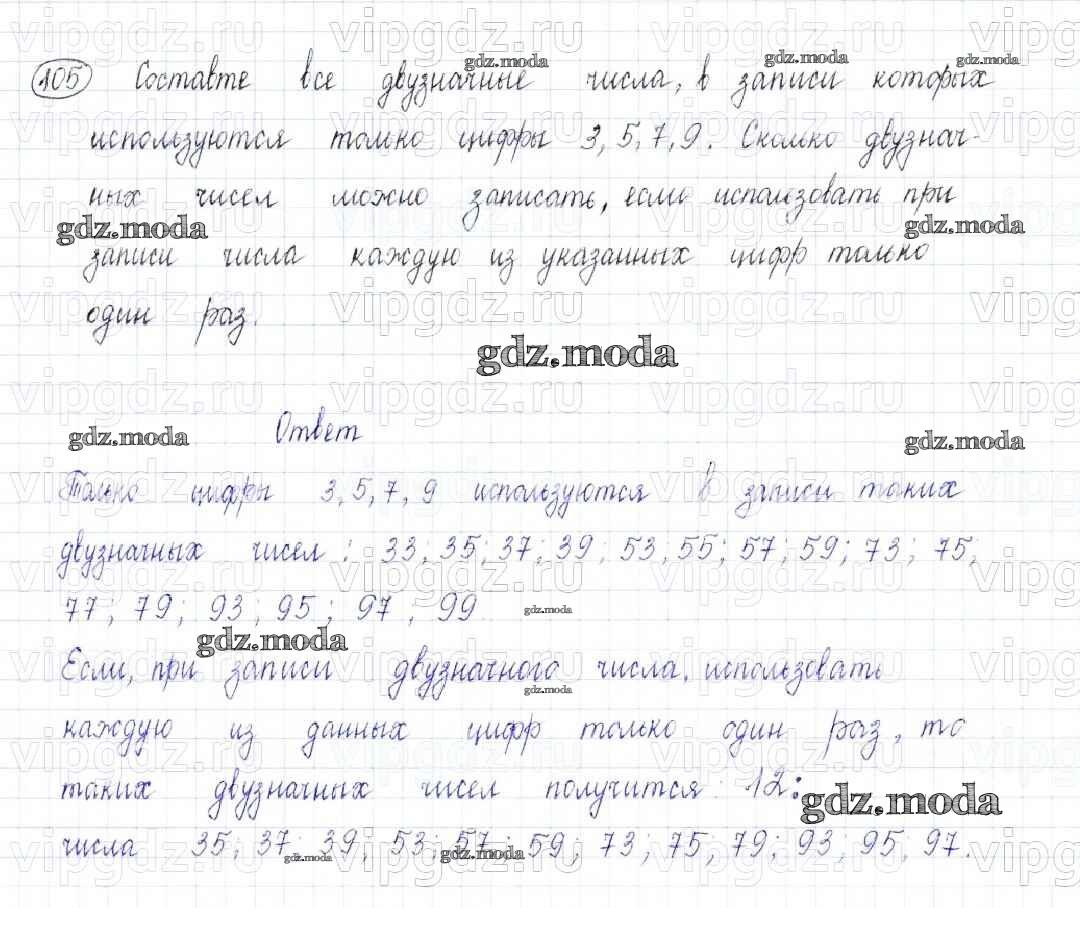 105 Составте все двузначные числа, в записи которых
используются только цифры 3, 5, 7, 9. Сколько двузнач-
ных чисел можно записать, если использовать при
записи числа каждую из указанных цифр только
один раз.
gdz.moda
Ответ
Только цифры 3, 5, 7, 9 используются в записи таких
двузначных чисел: 33, 35; 37; 39; 53; 55; 57; 59; 73; 75;
77; 79; 93; 95; 97; 99
Если, при записи двузначного числа, использовать
каждую из данных цифр только один раз, то
таких двузначных чисел получится 12:
числа 35; 37; 39; 53; 57; 59; 73; 75, 79; 93; 95, 97.